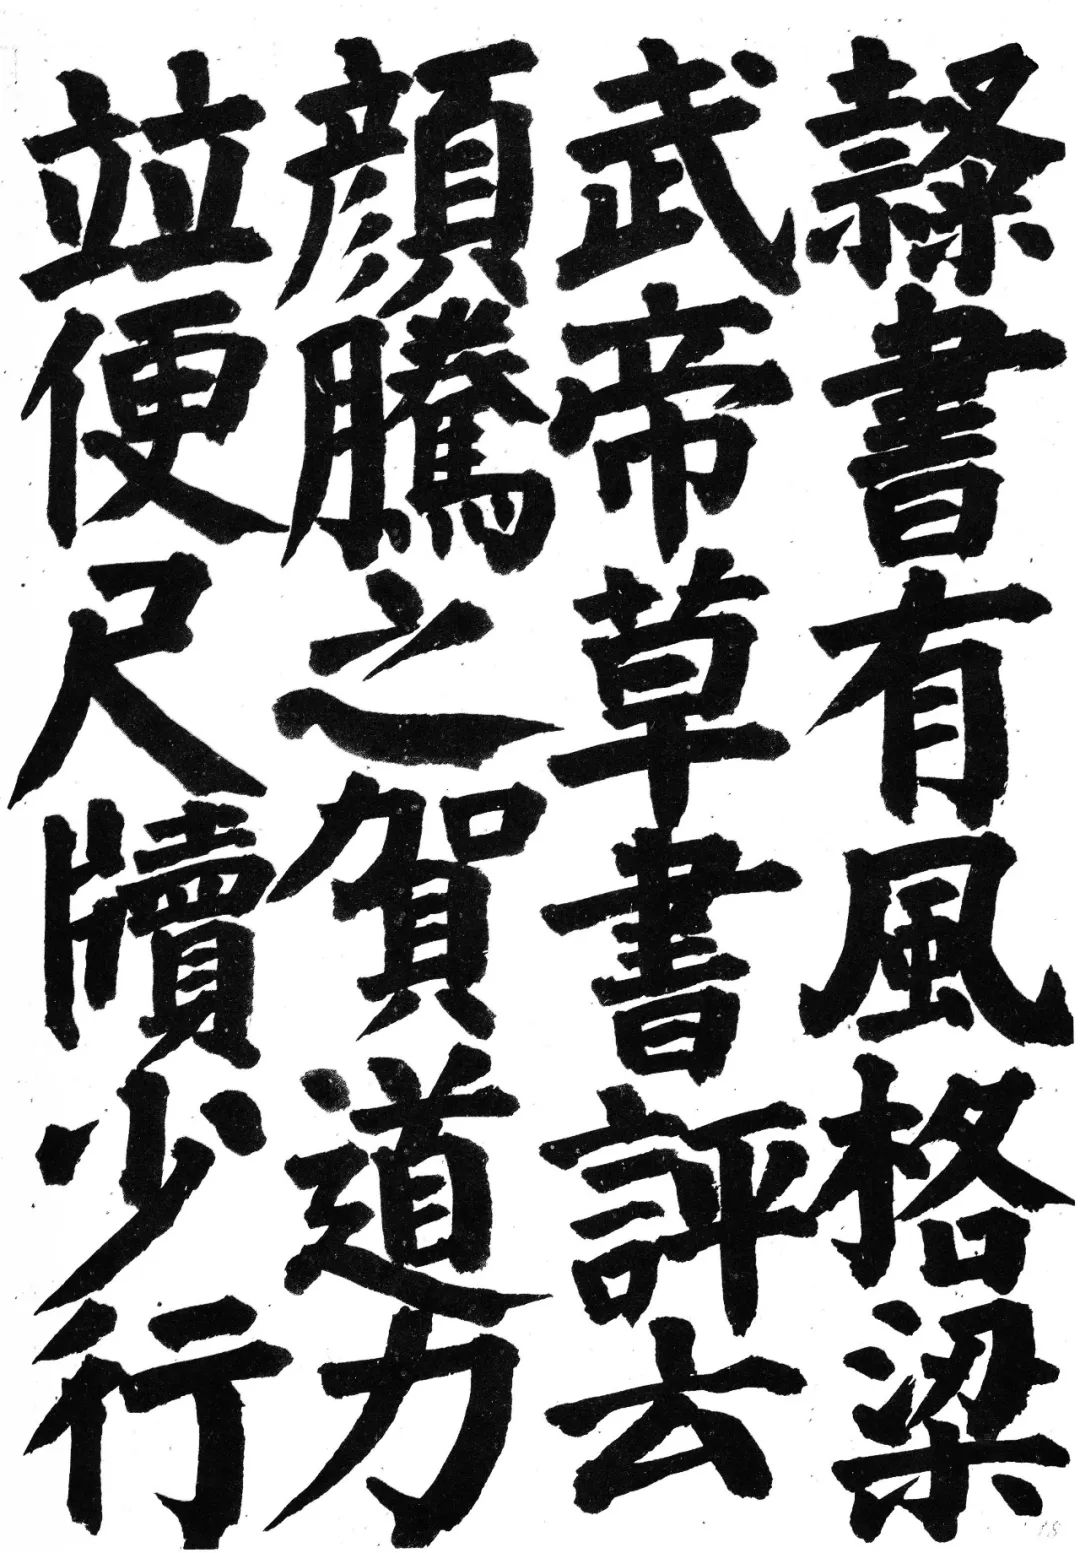 隸書有風格梁
武帝草書評云
顏騰之賀道力
並便尺牘少行